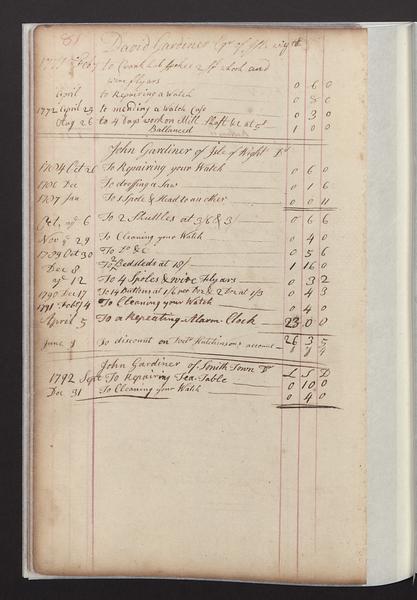 81 David Gardiner Isle of Wight
wire flyars 0 6 0
April to Repairing a Watch 0 8 0
1772 April 29 to mending a Watch Case 0 3 0
Aug 26 to 4 Days work on Mill Shaft &c at 5/ 1 0 0
Ballanced
John Gardiner of Isle of Wight Dr
Oct 26 To Repairing your Watch 0 6 0
Dec To dressing a Saw 0 1 6
Jan To 1 Spole & Head to another 0 0 11
Oct 6 To 2 Shuttles at 3/6 & 3/ 0 6 6
Nov 29 To Cleaning your Watch 0 4 0
1789 Oct 30 To Do &c 0 5 6
Dec 8 To 2 Bedsteds at 18/ 1 16 0
12 To 4 Spoles & wire Flyars 0 3 2
1790 Dec 17 0 4 3
1791 Feby 4 To Cleaning your Watch 0 4 0
April 5 To a Repeating Alarm Clock 23 0 0
26 3 5
June To discount on Hutchinsons account
John Gardiner of Smith Town Dr L S D
1792 Sept To Repairing Tea Table 0 10 0
Dec 31 To Cleaning your Watch 0 4 0